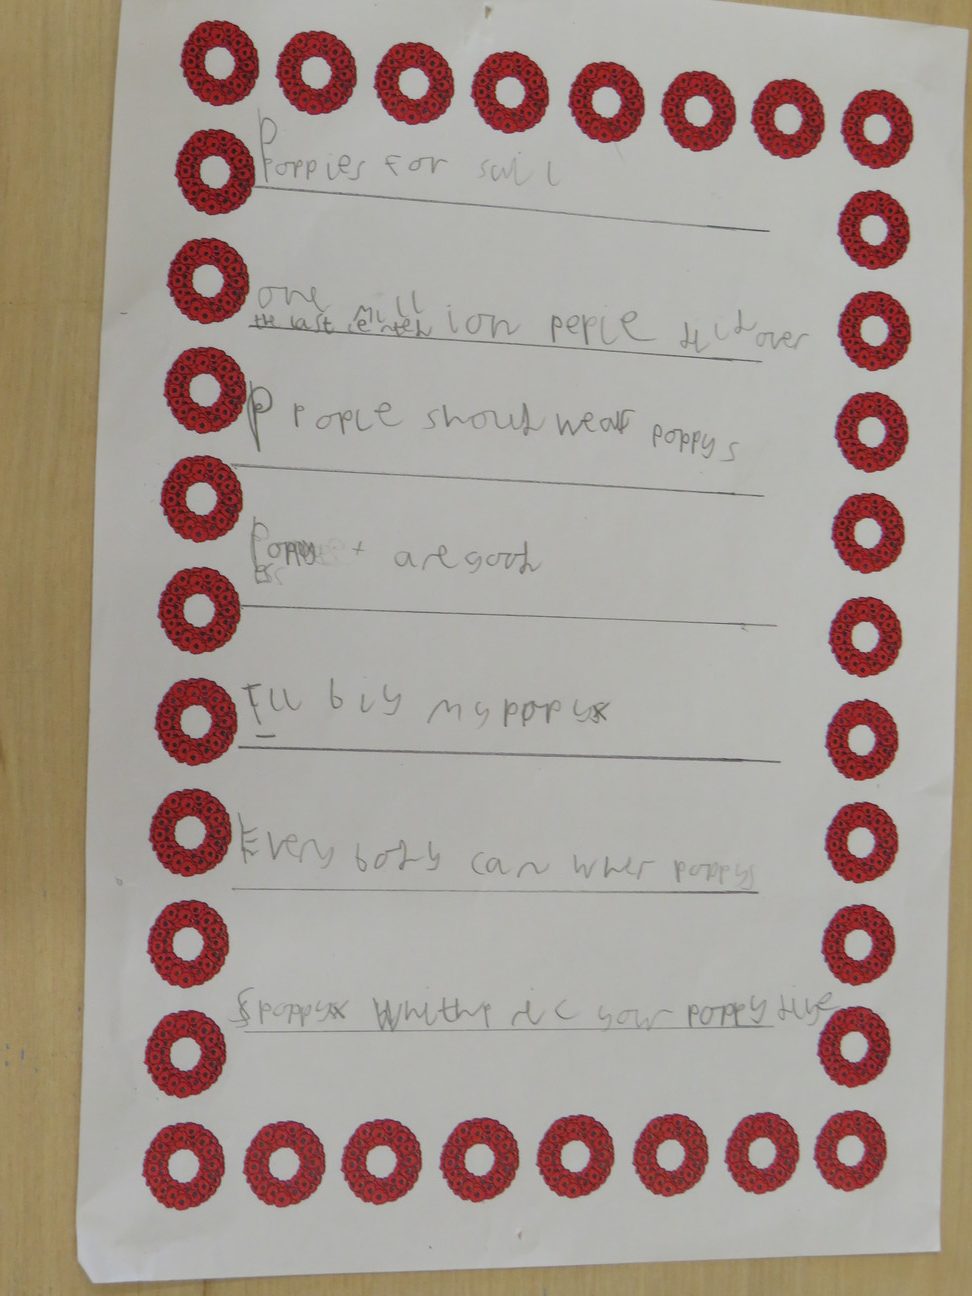 Poppies for sail
one mill ion peple did over
the last
P people should wear poppys
Poppy are good
I'll biy my poppy
Every body can wher poppys
poppy your poppy